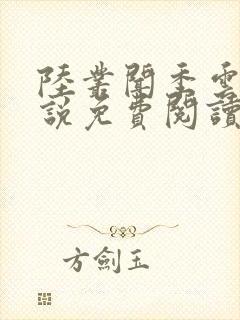 陸業聞季雲
說免費閱讀
方劍玉